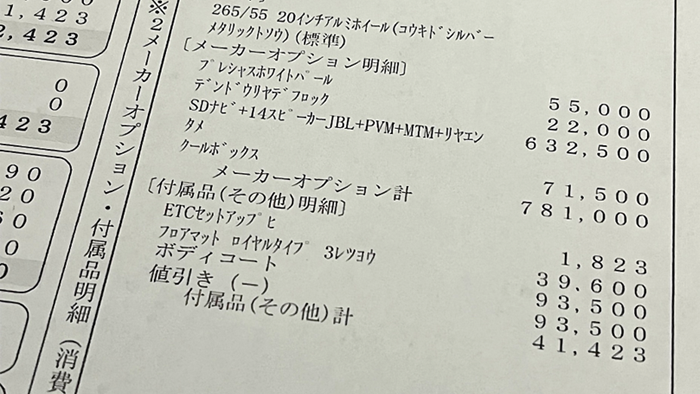 1,423
2,423
0
0
423
90
20
60
0
0
※2メーカーオプション・付属品明細(消費
265/55 20インチアルミホイール(コウキドシルバー
メタリックトソウ)(標準)
[メーカーオプション明細]
プレシャスホワイトパール 55,000
デンドウリヤデフロック 22,000
SDナビ+14スピーカーJBL+PVM+MTM+リヤエン 632,500
タメ
クールボックス 71,500
メーカーオプション計 781,000
[付属品(その他)明細]
ETCセットアップヒ 1,823
フロアマット ロイヤルタイプ 3レツヨウ 39,600
ボディコート 93,500
値引き (-) 93,500
付属品(その他)計 41,423